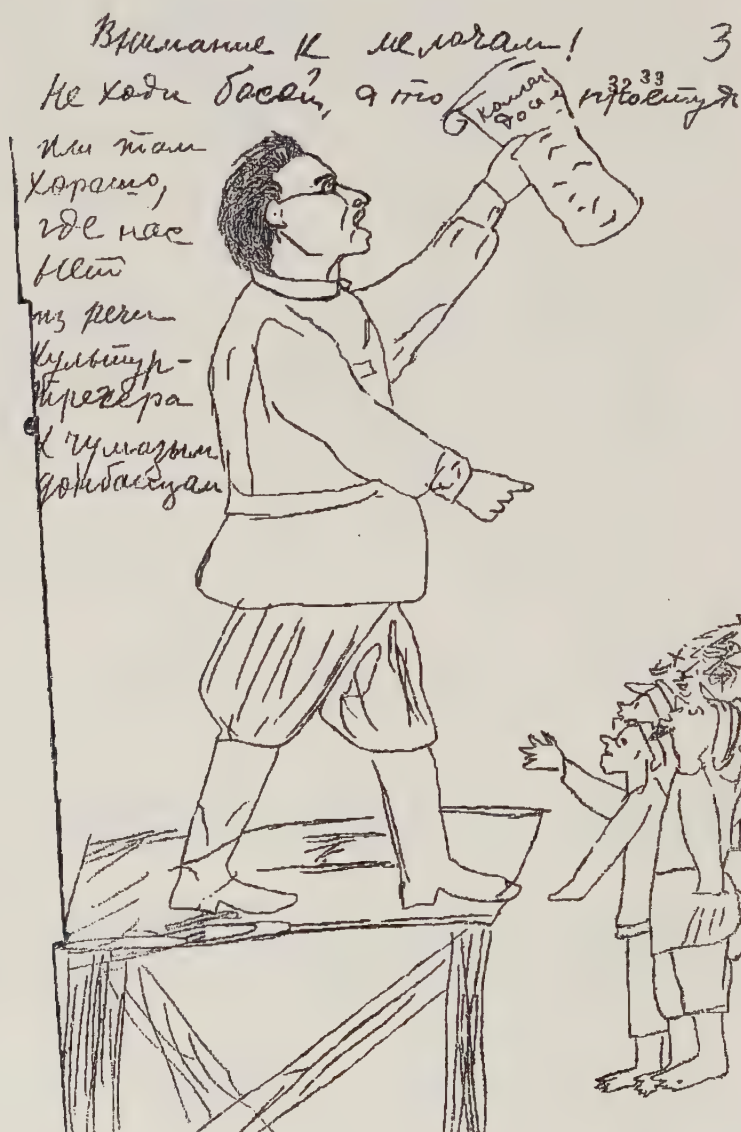 Внимание к мелочам! 3
Не ходи босой, а то
32 33
или там
хорошо,
где нас
нет
из речи
культур-
трегера
к чумазым
донбассцам